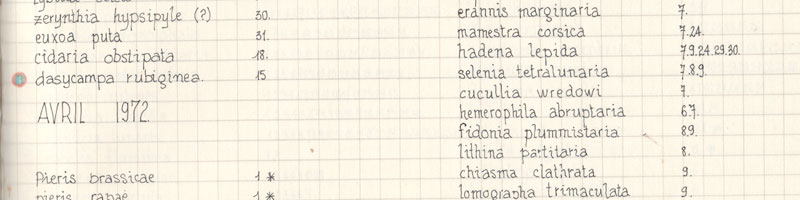 zerynthia hypsipyle (?) 30.
euxoa puta 31.
cidaria obstipata 18.
dasycampa rubiginea. 15
AVRIL 1972
Pieris brassicae 1 *
pieris rapae 1 *
erannis marginaria 7.
mamestra corsica 7.24.
hadena lepida 7.9.24.29.30.
selenia tetralunaria 7.8.9.
cucullia wredowi 7.
hemerophila abruptaria 6.7.
fidonia plummistaria 8.9.
lithina partitaria 8.
chiasma clathrata 9.
lomographa trimaculata 9.